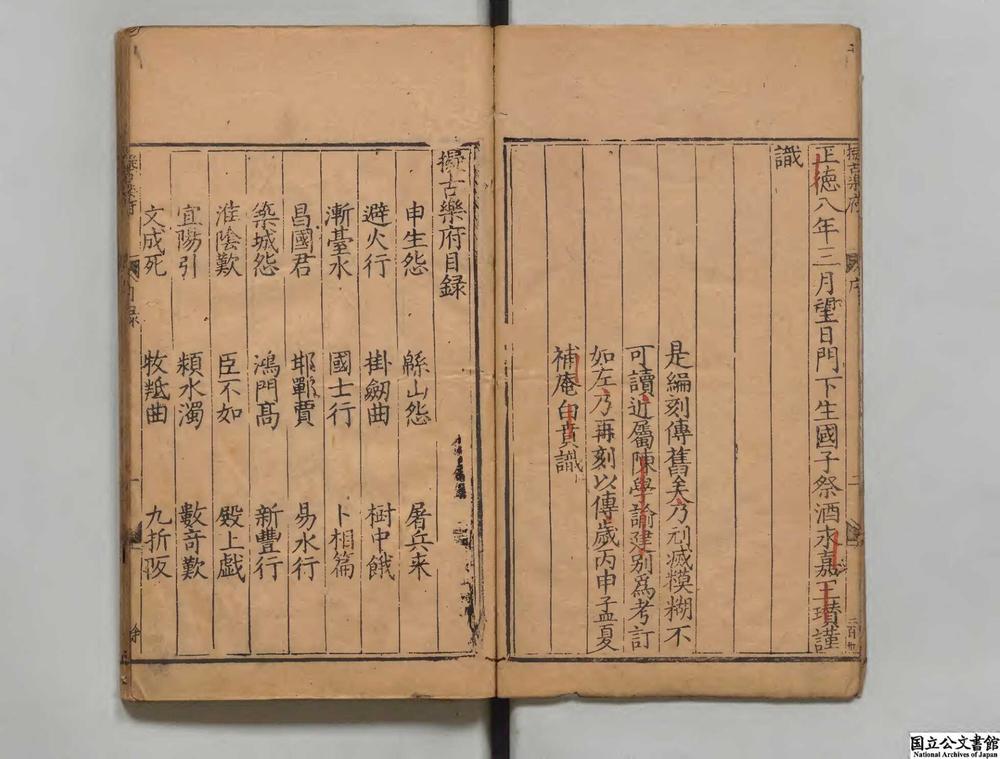 正德八年三月望日門下生國子祭酒永嘉王瓚謹
識
是編刻傳舊矣乃刓滅糢糊不
可讀近屬陳學諭建別爲考訂
如左乃再刻以傳歲丙申孟夏
補庵白賁識
擬古樂府目録
申生怨 緜山怨 屠兵来
避火行 掛劒曲 樹中餓
漸臺水 國士行 卜相篇
昌國君 邯鄲賈 易水行
築城怨 鴻門髙 新豐行
淮陰歎 臣不如 殿上戯
宜陽引 潁水濁 數竒歎
文成死 牧羝曲 九折阪
国立公文書館
National Archives of Japan